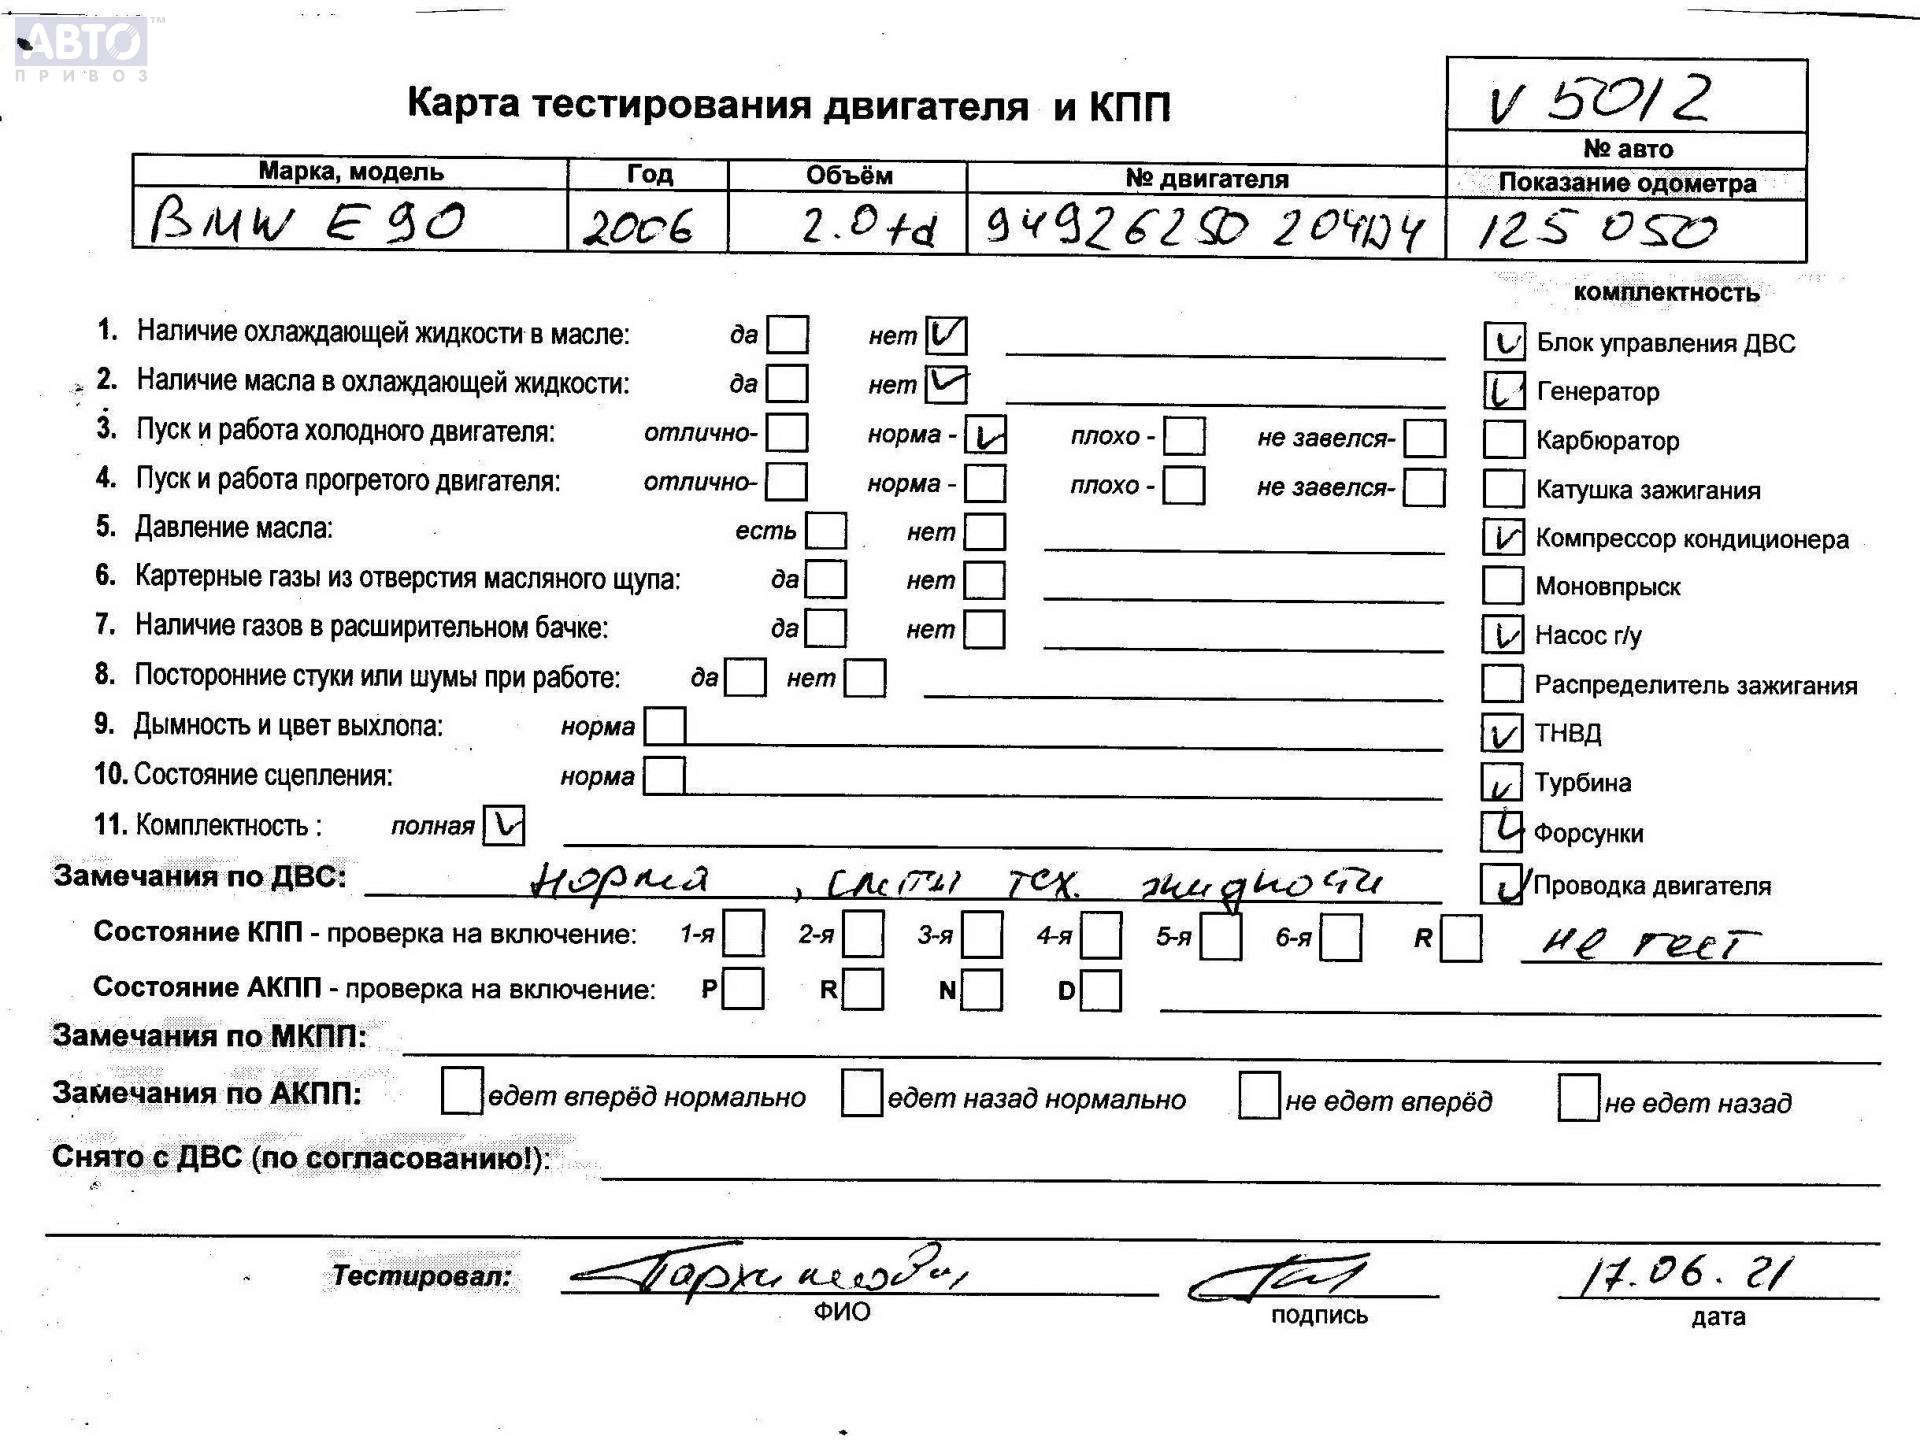 АВТО™
ПРИВОЗ
Карта тестирования двигателя и КПП
V 5012
№ авто
Марка, модель Год Объём № двигателя Показание одометра
BMW E90 2006 2.0td 94926250 204D4 125 050
комплектность
1. Наличие охлаждающей жидкости в масле: да нет V
Блок управления ДВС
2. Наличие масла в охлаждающей жидкости: да нет V
Генератор
3. Пуск и работа холодного двигателя: отлично- норма - V плохо - не завелся-
Карбюратор
4. Пуск и работа прогретого двигателя: отлично- норма - плохо - не завелся-
Катушка зажигания
5. Давление масла: есть нет
Компрессор кондиционера
6. Картерные газы из отверстия масляного щупа: да нет
Моновпрыск
7. Наличие газов в расширительном бачке: да нет
Насос г/у
8. Посторонние стуки или шумы при работе: да нет
Распределитель зажигания
9. Дымность и цвет выхлопа: норма
ТНВД
10. Состояние сцепления: норма
Турбина
11. Комплектность : полная V
Форсунки
Замечания по ДВС: норма , слиты тех. жидкости
Проводка двигателя
Состояние КПП - проверка на включение: 1-я 2-я 3-я 4-я 5-я 6-я R не тест
Состояние АКПП - проверка на включение: P R N D
Замечания по МКПП:
Замечания по АКПП: едет вперёд нормально едет назад нормально не едет вперёд не едет назад
Снято с ДВС (по согласованию!):
Тестировал: 17.06.21
ФИО подпись дата